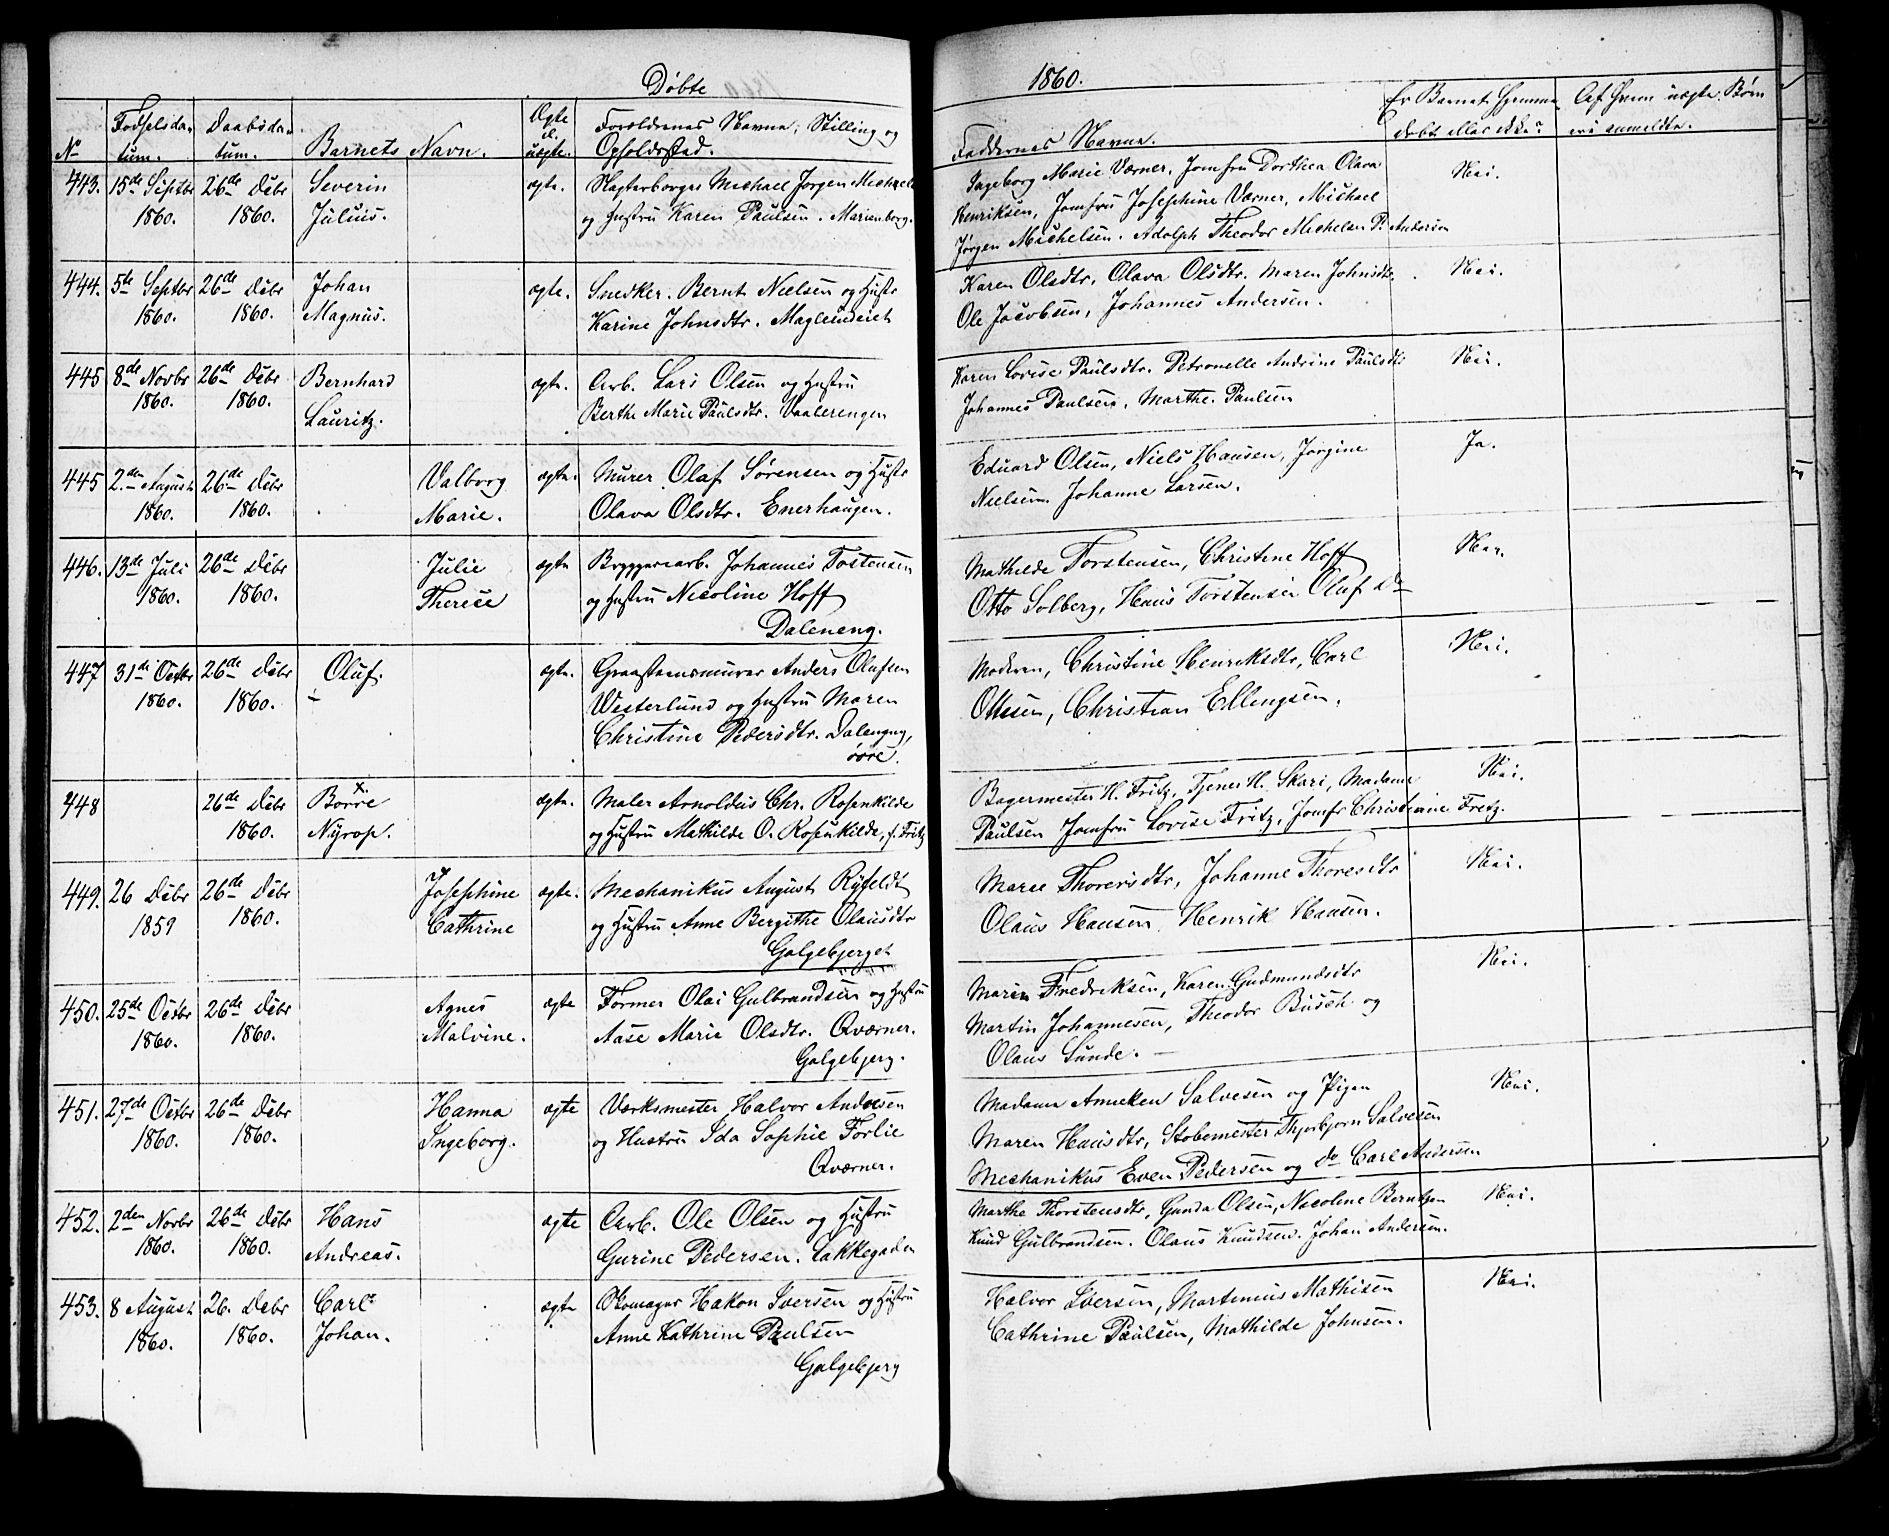 Døbte
1860.
No
Fødselsda-
tum.
Daabsda-
tum.
Barnets Navn.
Ægte
el.
uægte.
Forældrenes Navne, Stilling og
Opholdssted.
Faddernes Navne.
Er Barnet hjemme
døbt eller ikke?
Af hvem uægte Børn
ere anmeldte.
443. 15de Septbr 26de Debr Severin ægte. Slagterborger Michael Jørgen Michaels
1860. 1860. Julius. og Hustru Karen Paulsen. Marienborg.
Ingeborg Marie Værner, Jomfru Dorthea Olava Nei.
Henriksen, Jomfru Josephine Værner, Michael
Jørgen Michelsen. Adolph Theodor Michelsen P. Andersen
444. 5te Septbr 26de Debr Johan ægte. Snedker. Bernt Nielsen og Hustr
1860. 1860. Magnus. Karine Johnsdtr.
Karen Olsdtr, Olava Olsdtr. Maren Johnsdtr. Nei.
Ole Jacobsen, Johannes Andersen.
445 8de Novbr 26de Debr Bernhard ægte. Arb. Lars Olsen og Hustru
1860. 1860. Lauritz. Berthe Marie Paulsdtr. Vaalerengen
Karen Lovise Paulsdtr. Petronelle Andrine Paulsdtr Nei.
Johannes Paulsen, Marthe Paulsen
445 2den August 26de Debr Valborg ægte. Murer Olaf Sørensen og Hustr
1860. 1860. Marie. Olava Olsdtr. Enerhaugen.
Eduard Olsen, Niels Hansen, Jørgine Ja.
Nielsen. Johanne Larsen.
446. 13de Juli 26de Debr Julie ægte Bryggeriarb. Johannes Tostensen
1860. 1860. Therese og Hustru Nicoline Hoff
Daleneng.
Mathilde Torstensen, Christine Hoff Nei.
Otto Solberg, Hans Torstensen Oluf do
447 31de Octbr 26de Debr Oluf. ægte. Graasteensmurer Anders Olafsen
1860. 1860. Westerlund og Hustru Maren
Christine Pedersdtr. Dalengng,
øvre.
Moderen, Christine Henriksdtr, Carl Nei.
Ottesen, Christian Ellingsen.
448 26de Debr Borre x. ægte. Maler Arnoldus Chr. Rosenkilde
1860. Nyrop. og Hustru Mathilde O. Rosenkilde, f. Fritz
Bagermester H. Fritz, Tjener H. Skari, Madame Nei.
Paulsen Jomfru Lovise Fritz, Jomfr Christiane Fretz.
449. 26 Debr 26de Debr Josephine ægte. Mechanikus August Ryfeldt
1859 1860. Cathrine og Hustru Anne Bergithe Olausdtr
Galgebjerget
Maree Thorersdtr, Johanne Thoresdtr Nei.
Olaus Hansen Henrik Hansen.
450. 25de Octbr 26de Debr Agnes ægte Former Olai Gulbrandsen og Hustru
1860. 1860. Malvine. Aase Marie Olsdtr. Qværner.
Galgebjerg.
Maren Fredriksen, Karen Gudmundsdtr Nei.
Martin Johannesen, Theodor Busch og
Olaus Sunde.
451. 27de Octbr 26de Debr Hanna ægte Værksmester Halvor Andresen
1860. 1860. Ingeborg. og Hustru Ida Sophie Forlie
Qværner.
Madame Anneken Salvesen og Pigen Nei.
Maren Hansdtr, Støbemester Thjerbjørn Salvesen
Mechanikus Even Pedersen og do Carl Andersen
452. 2den Novbr 26de Debr Hans ægte Arb. Ole Olsen og Hustru
1860. 1860. Andreas. Gurine Pedersen. Lakkegaden
Marthe Thorstensdtr, Gunda Olsen, Nicoline Berntsen Nei.
Knud Gulbrandsen. Olaus Knudsen. Johan Andersen.
453. 8 August 26. Debr Carl ægte Skomager Hakon Iversen og Hustru
1860. 1860. Johan. Anne Kathrine Paulsen
Galgebjerg
Halvor Iversen, Martinius Mathisen Nei.
Cathrine Paulsen, Mathilde Johnsen.